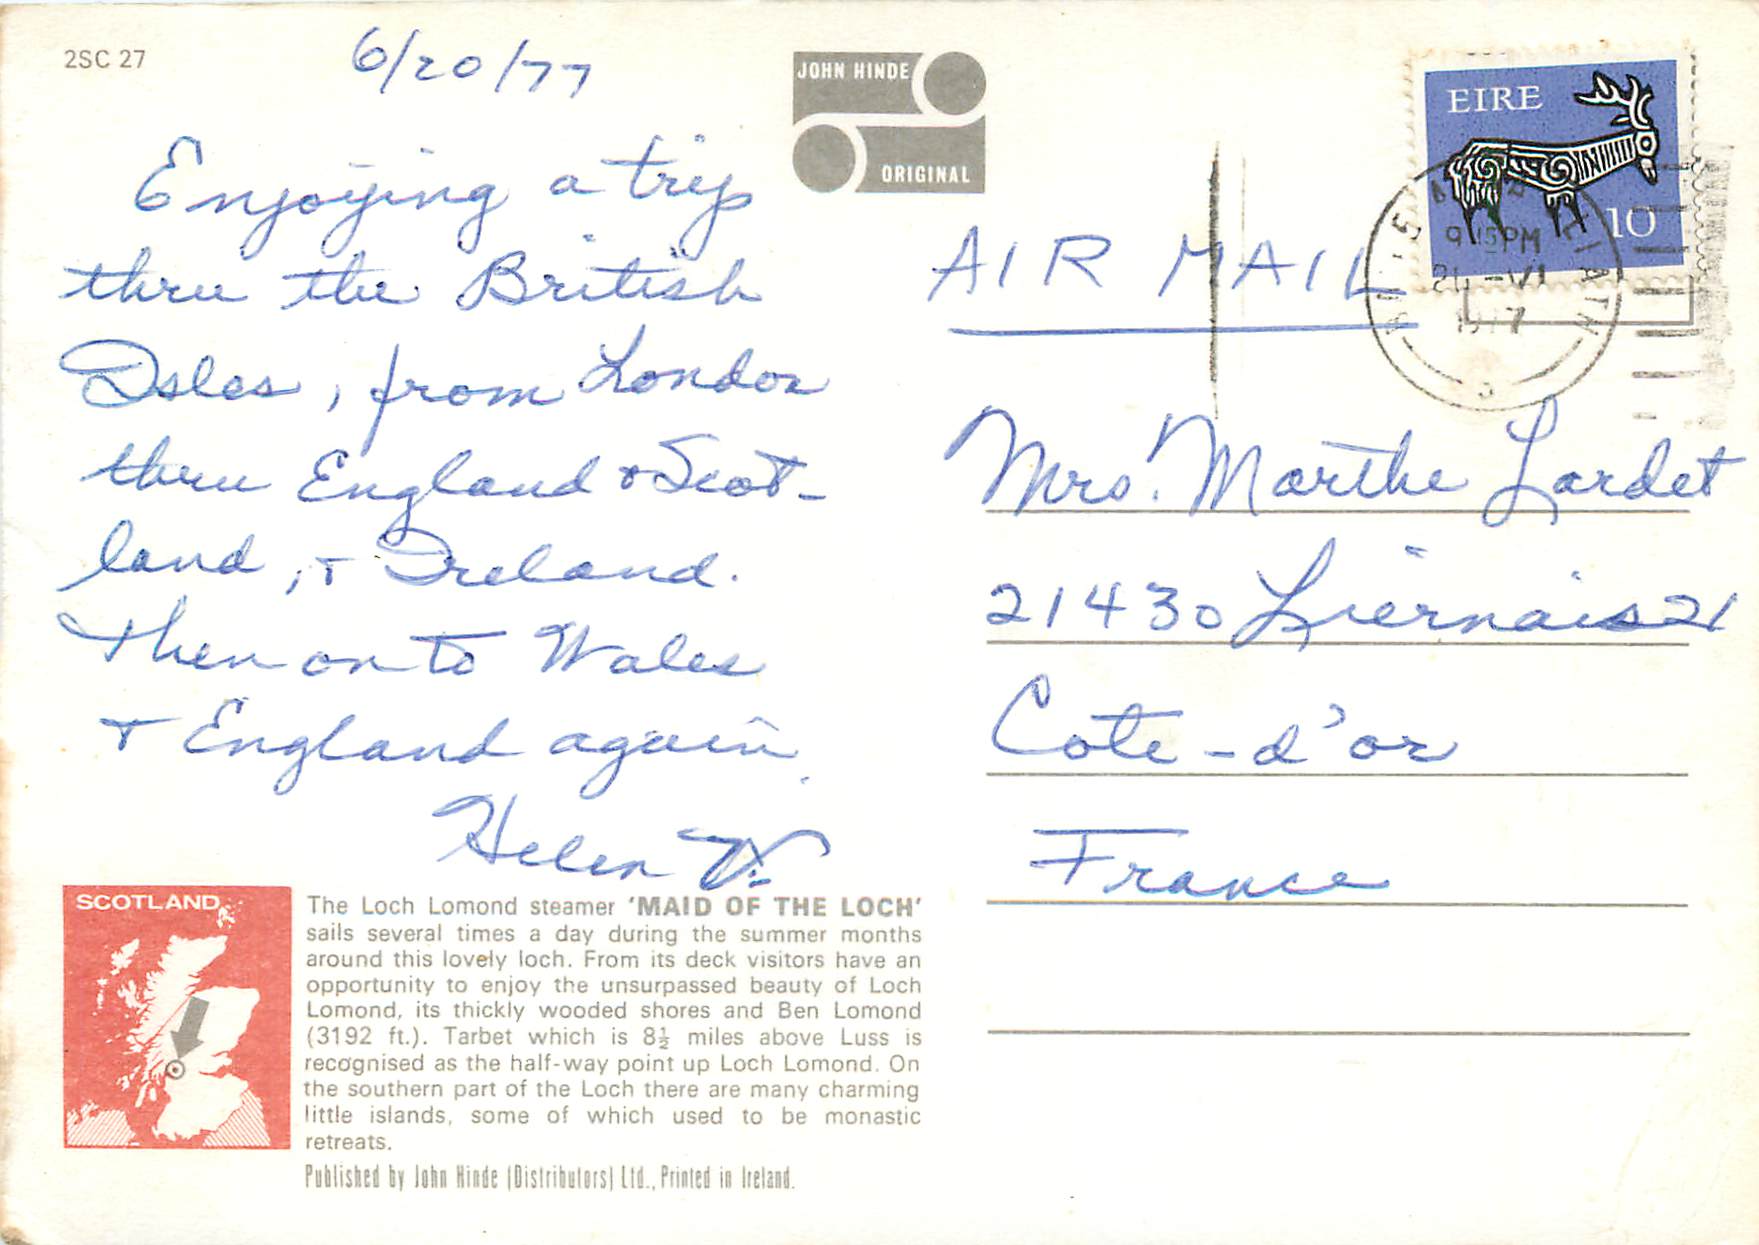 2SC 27
6/20/77
JOHN HINDE
ORIGINAL
Enjoying a trip
thru the British
Isles, from London
thru England & Scot-
land, & Ireland.
Then on to Wales
& England again.
Helen
EIRE
10
BAILE ATHA CLIATH
9 15PM
21 VI
1977
AIR MAIL
Mrs. Marthe Lardet
21430 Liernais 21
Cote-d'or
France
SCOTLAND
The Loch Lomond steamer 'MAID OF THE LOCH'
sails several times a day during the summer months
around this lovely loch. From its deck visitors have an
opportunity to enjoy the unsurpassed beauty of Loch
Lomond, its thickly wooded shores and Ben Lomond
(3192 ft.). Tarbet which is 8½ miles above Luss is
recognised as the half-way point up Loch Lomond. On
the southern part of the Loch there are many charming
little islands, some of which used to be monastic
retreats.
Published by John Hinde (Distributors) Ltd., Printed in Ireland.